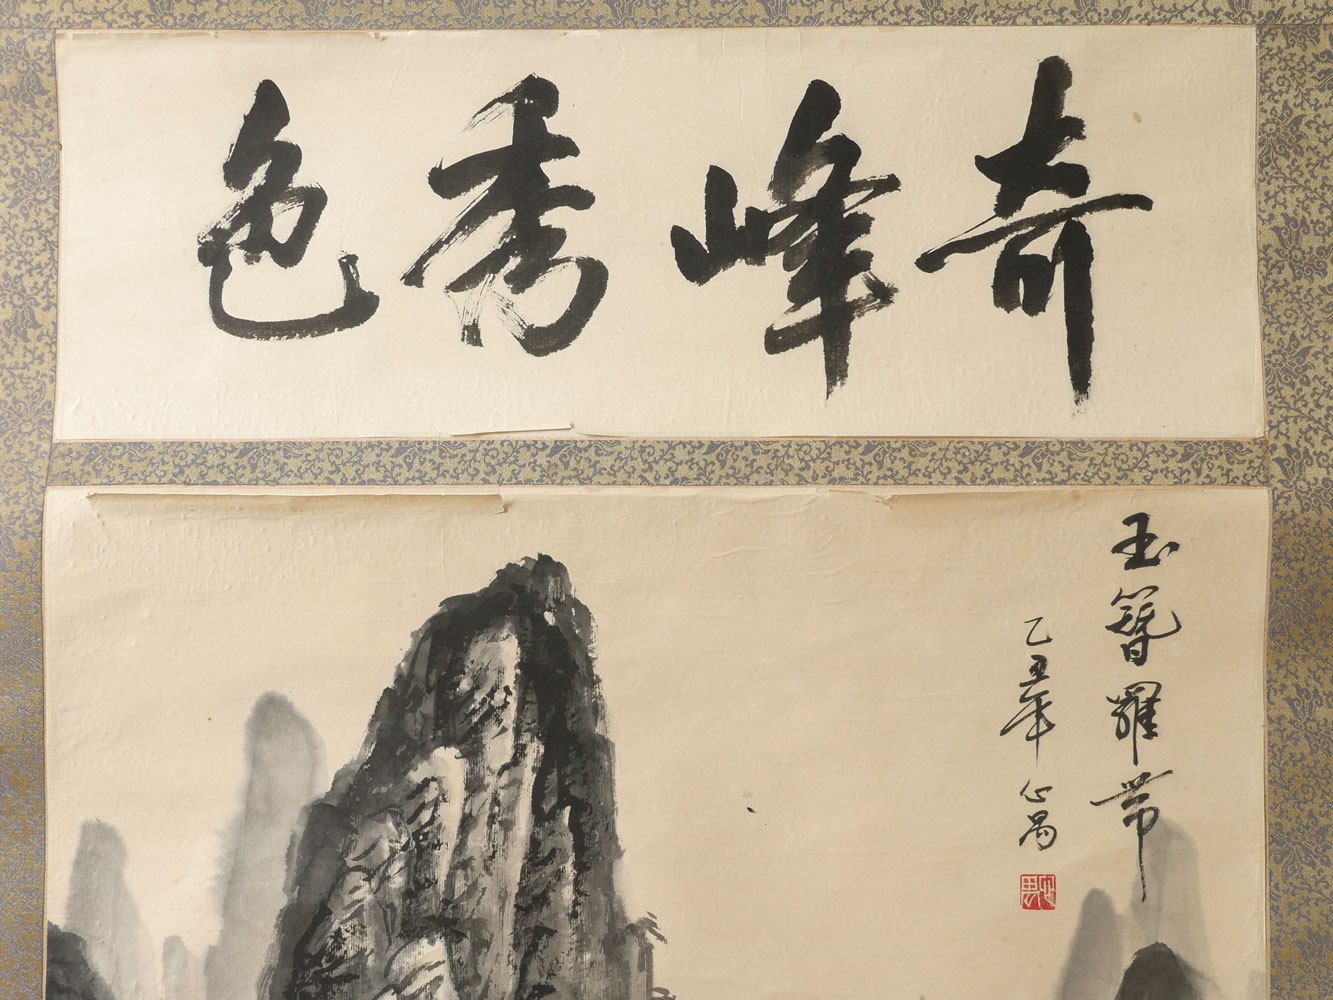 奇峰秀色
玉簪羅带
乙丑年 心禺